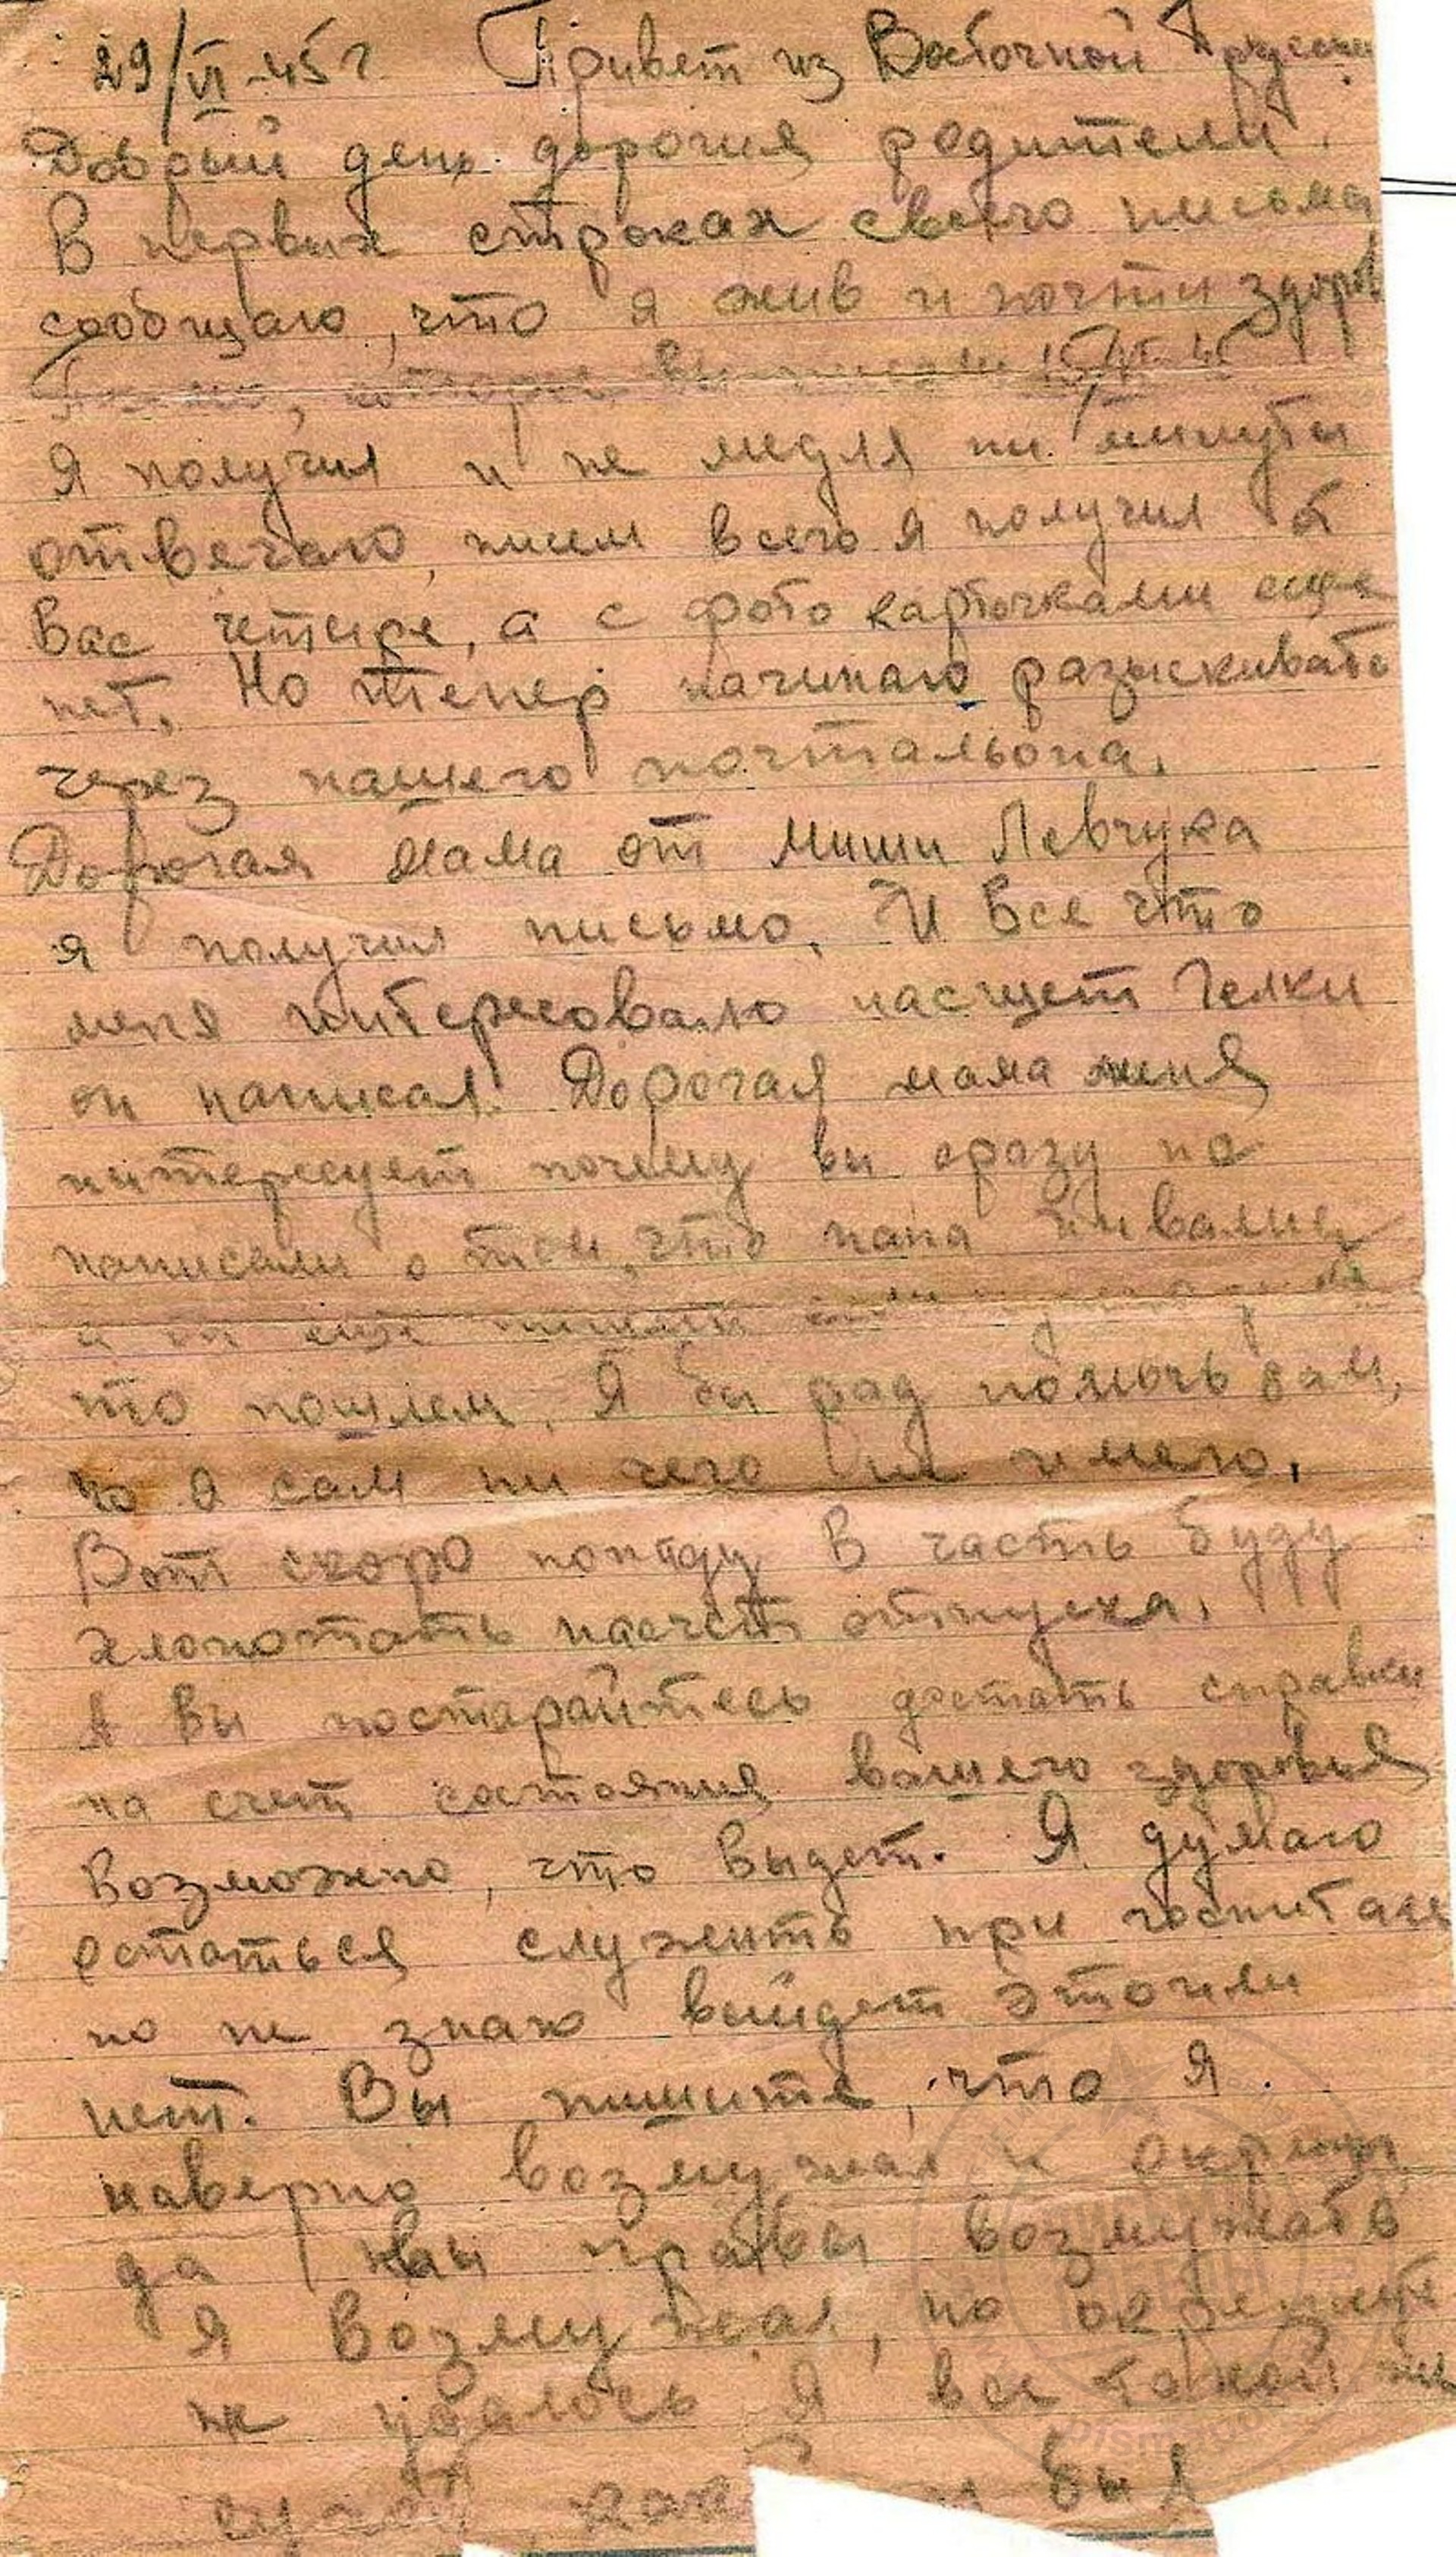 29/VI-45г. Привет из Восточной Пруссии
Добрый день дорогия родители.
В первых строках своего письма
сообщаю, что я жив и почти здоров
которое 15/VI-45
Я получил и не медля ни минуты
отвечаю, писем всего я получил от
Вас четыре, а с фото карточками еще
нет. Но тепер начинаю разыскивать
через нашего почтальона.
Дорогая мама от Миши Левчука
я получил письмо. И все что
меня интересовало насщет Гелки
он написал. Дорогая мама меня
интересует почему вы сразу не
написали о том, что папа инвалид
а он еще
что пошлем. Я бы рад помочь вам,
но я сам ни чего не имею.
Вот скоро попаду в часть буду
хлопотать насчет отпуска.
А вы постарайтесь достать справки
на счет состояния вашего здоровья
возможно, что выдет. Я думаю
остаться служить при госпитале
но не знаю выйдет это или
нет. Вы пишите, что я
наверно возмужал и окреп,
да вы правы возмужать
я возмужал, но окрепнуть
не удалось я все такой же
был